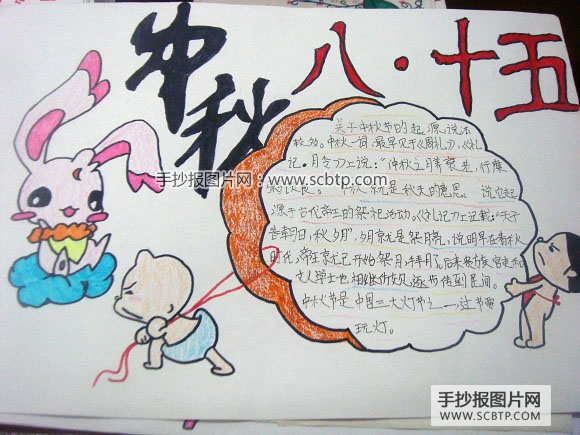 中秋
八·十五
关于中秋节的起源,说法
较多。中秋一词,最早见于《周礼》,《礼
记·月令》上说:“仲秋之月养衰老,行糜
粥饮食。”
手抄报图片网:www.scbtp.com
中秋就是秋天的意思。说它起
源于古代帝王的祭祀活动。《礼记》上记载:“天子
春朝日,秋夕月”,夕月就是祭月亮,说明早在春秋
时代,帝王就已开始祭月、拜月了。后来贵族官吏和
文人学士也相继仿效,逐步传到民间。
中秋节是中国三大灯节之一,过节要
玩灯。
手抄报图片网
WWW.SCBTP.COM